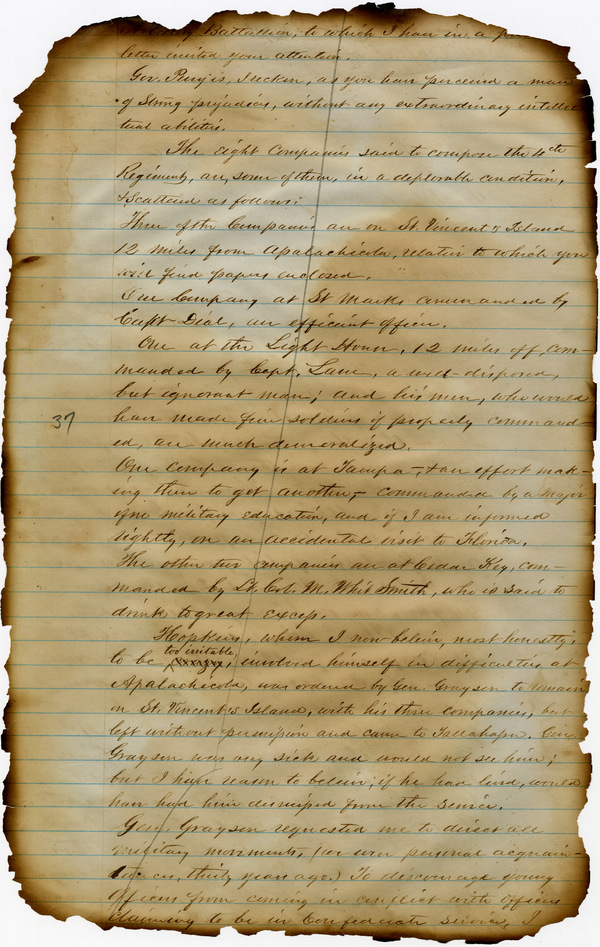 Battallion, to which I have in a
letter invited your attention.
Gov. Perry is, I reckon, as you have perceived a man
of Strong prejudices, without any extraordinary intellec
tual abilities.
The eight Companies said to compose the 4th
Regiment, are, some of them, in a deplorable condition,
& Scattered as follows:
Three of the Companies are on St. Vincent's Island
12 miles from Apalachicola, relative to which you
will find papers enclosed.
One Company at St Marks commanded by
Capt Dial, an efficient officer.
One at the Light House, 12 miles off, com-
manded by Capt. Lane, a well-disposed,
but ignorant man; and his men, who would
37
have made fine soldiers if properly command-
ed, are much demoralized.
One company is at Tampa-, & an effort mak-
ing there to get another,- commanded by a Major
of military education, and if I am informed
rightly, on an accidental visit to Florida.
The other two companies are at Cedar Key, com-
manded by Lt. Col. M. Whit Smith, who is said to
drink to great excess.
Hopkins, whom I now believe, most honestly,
too irritable
to be, involved himself in difficulties at
Apalachicola, was ordered by Gen. Grayson to remain
on St. Vincent's Island, with his three companies, but
left without permission and came to Tallahassee. Gen.
Grayson was very sick and would not see him;
but I have reason to believe, if he had lived, would
have had him dismissed from the service.
Gen. Grayson requested me to direct all
military movements, (we were personal acquain-
tances, thirty years ago.) To discourage young
officers from coming in conflict with officers
claiming to be in Confederate service, I